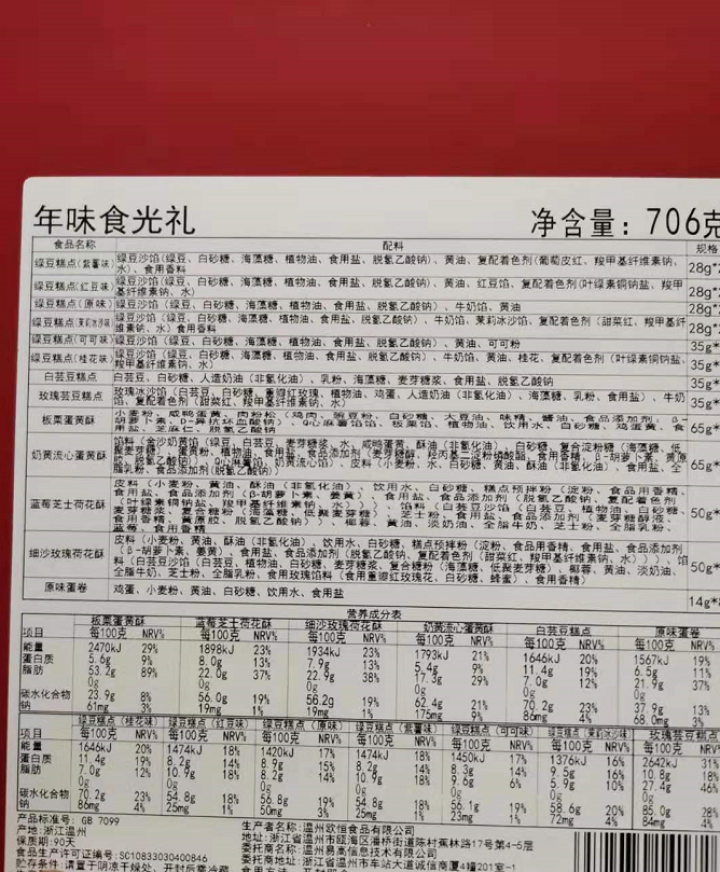 年味食光礼
净含量：706克
食品名称 配料 规格
绿豆糕点(紫薯味) 绿豆沙馅(绿豆、白砂糖、海藻糖、植物油、食用盐、脱氢乙酸钠)、黄油、复配着色剂(葡萄皮红、羧甲基纤维素钠、水)、食用香料 28g*
绿豆糕点(红豆味) 绿豆沙馅(绿豆、白砂糖、海藻糖、植物油、食用盐、脱氢乙酸钠)、黄油、红豆馅、复配着色剂(叶绿素铜钠盐、羧甲基纤维素钠、水) 28g*
绿豆糕点(原味) 绿豆沙馅(绿豆、白砂糖、海藻糖、植物油、食用盐、脱氢乙酸钠)、牛奶馅、黄油 28g*
绿豆糕点(茉莉冰沙味) 绿豆沙馅(绿豆、白砂糖、海藻糖、植物油、食用盐、脱氢乙酸钠)、牛奶馅、茉莉冰沙馅、复配着色剂(甜菜红、羧甲基纤维素钠、水)食用香料 28g*
绿豆糕点(可可味) 绿豆沙馅(绿豆、白砂糖、海藻糖、植物油、食用盐、脱氢乙酸钠)、黄油、可可粉 35g*
绿豆糕点(桂花味) 绿豆沙馅(绿豆、白砂糖、海藻糖、植物油、食用盐、脱氢乙酸钠)、牛奶馅、黄油、桂花、复配着色剂(叶绿素铜钠盐、羧甲基纤维素钠、水) 35g*
白芸豆糕点 白芸豆、白砂糖、人造奶油(非氢化油)、乳粉、海藻糖、麦芽糖浆、食用盐、脱氢乙酸钠 35g*
玫瑰芸豆糕点 玫瑰冰沙馅(白芸豆、白砂糖、重瓣红玫瑰、植物油、鸡蛋、人造奶油(非氢化油)、海藻糖、乳粉、食用盐)、牛奶馅、复配着色剂(甜菜红、羧甲基纤维素钠、水) 35g*
板栗蛋黄酥 小麦粉、咸鸭蛋黄、肉粉松(鸡肉、豌豆粉、白砂糖、大豆油、味精、酱油、食品添加剂 65g*
奶黄流心蛋黄酥 馅料(金沙奶黄馅(绿豆、白芸豆、麦芽糖浆、水、咸鸭蛋黄、酥油(非氢化油)、白砂糖、复合淀粉糖(海藻糖、低聚麦芽糖) 65g*
蓝莓芝士荷花酥 皮料(小麦粉、黄油、酥油(非氢化油)、饮用水、白砂糖、糕点预拌粉(淀粉、食品用香精、食用盐、食品添加剂(β-胡萝卜素、姜黄) 50g*
细沙玫瑰荷花酥 皮料(小麦粉、黄油、酥油(非氢化油)、饮用水、白砂糖、糕点预拌粉(淀粉、食品用香精、食用盐、食品添加剂(β-胡萝卜素、姜黄)、食用盐、食品添加剂(脱氢乙酸钠、复配着色剂(甜菜红、羧甲基纤维素钠、水)))、馅料(白芸豆沙馅(白芸豆、植物油、白砂糖、麦芽糖浆、复合糖粉(海藻糖、低聚麦芽糖)、椰蓉、黄油、淡奶油、全脂牛奶、芝士粉、全脂乳粉、食用玫瑰馅料(食用重瓣红玫瑰花、白砂糖、蜂蜜)、食用香精) 50g*
原味蛋卷 鸡蛋、小麦粉、黄油、白砂糖、饮用水、食用盐 14g*
营养成分表
板栗蛋黄酥 蓝莓芝士荷花酥 细沙玫瑰荷花酥 奶黄流心蛋黄酥 白芸豆糕点 原味蛋卷
项目 每100克 NRV% 每100克 NRV% 每100克 NRV% 每100克 NRV% 每100克 NRV% 每100克 NRV%
能量 2470kJ 29% 1898kJ 23% 1934kJ 23% 1793kJ 21% 1646kJ 20% 1567kJ 19%
蛋白质 5.6g 9% 8.0g 13% 7.9g 13% 5.4g 9% 11.4g 19% 6.5g 11%
脂肪 53.2g 89% 22.0g 37% 22.9g 38% 17.3g 29% 7.0g 12% 21.9g 37%
0g 0g 0g 0g 0g 0g
碳水化合物 23.9g 8% 56.0g 19% 56.2g 19% 62.4g 21% 70.2g 23% 37.9g 13%
钠 61mg 3% 19mg 1% 19mg 1% 175mg 9% 86mg 4% 68.0mg 3%
绿豆糕点(桂花味) 绿豆糕点(红豆味) 绿豆糕点(原味) 绿豆糕点(紫薯味) 绿豆糕点(可可味) 绿豆糕点(茉莉冰沙味) 玫瑰芸豆糕点
项目 每100克 NRV% 每100克 NRV% 每100克 NRV% 每100克 NRV% 每100克 NRV% 每100克 NRV% 每100克 NRV%
能量 1646kJ 20% 1474kJ 18% 1420kJ 17% 1474kJ 18% 1450kJ 17% 1376kJ 16% 2642kJ 31%
蛋白质 11.4g 19% 8.2g 14% 8.9g 15% 8.2g 14% 8.3g 14% 9.5g 16% 10.8g 18%
脂肪 7.0g 12% 10.9g 18% 8.2g 14% 10.9g 18% 9.6g 6% 5.9g 10% 27.4g 46%
0g 0g 0g 0g 0g 0g 0g
碳水化合物 70.2g 23% 54.8g 18% 56.8g 19% 54.8g 18% 56.1g 19% 58.6g 20% 85.0g 28%
钠 86mg 4% 25mg 1% 50mg 3% 25mg 1% 23mg 1% 72mg 4% 84mg 4%
产品标准号：GB 7099
产地：浙江温州
保质期：90天
食品生产许可证编号：SC10833030400846
贮存条件：请置于阴凉干燥处、开封后需冷藏
生产者名称：温州欧恒食品有限公司
地址：浙江省温州市瓯海区潘桥街道陈村蕉林路17号第4-5层
委托商名称：温州易高信息技术有限公司
委托商地址：浙江省温州市车站大道诚信商厦4幢201室-1